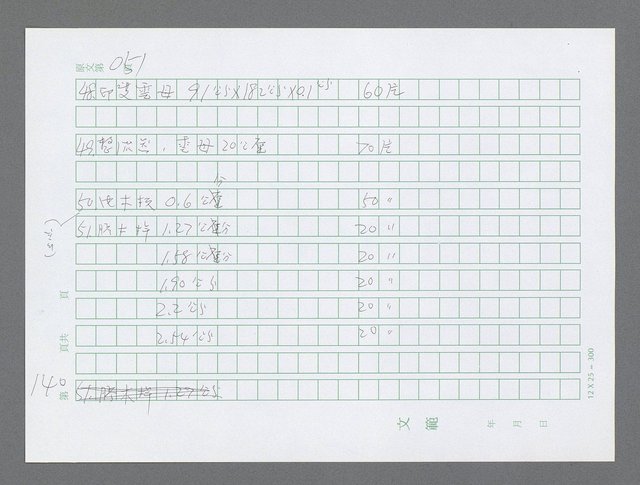 原文第 051
48. 印度雲母 91公分×182公分×0.1公分 60片
49. 雲母20公厘 70片
50. 夾木板 0.6公分 50〃
51. 膠木 1.27公分 20〃
1.58公分 20〃
1.90公分 20〃
2.2公分 20〃
2.54公分 20〃
51. 膠木 1.27公分
第 140
頁共
頁
12 X 25 = 300
文範
年 月 日